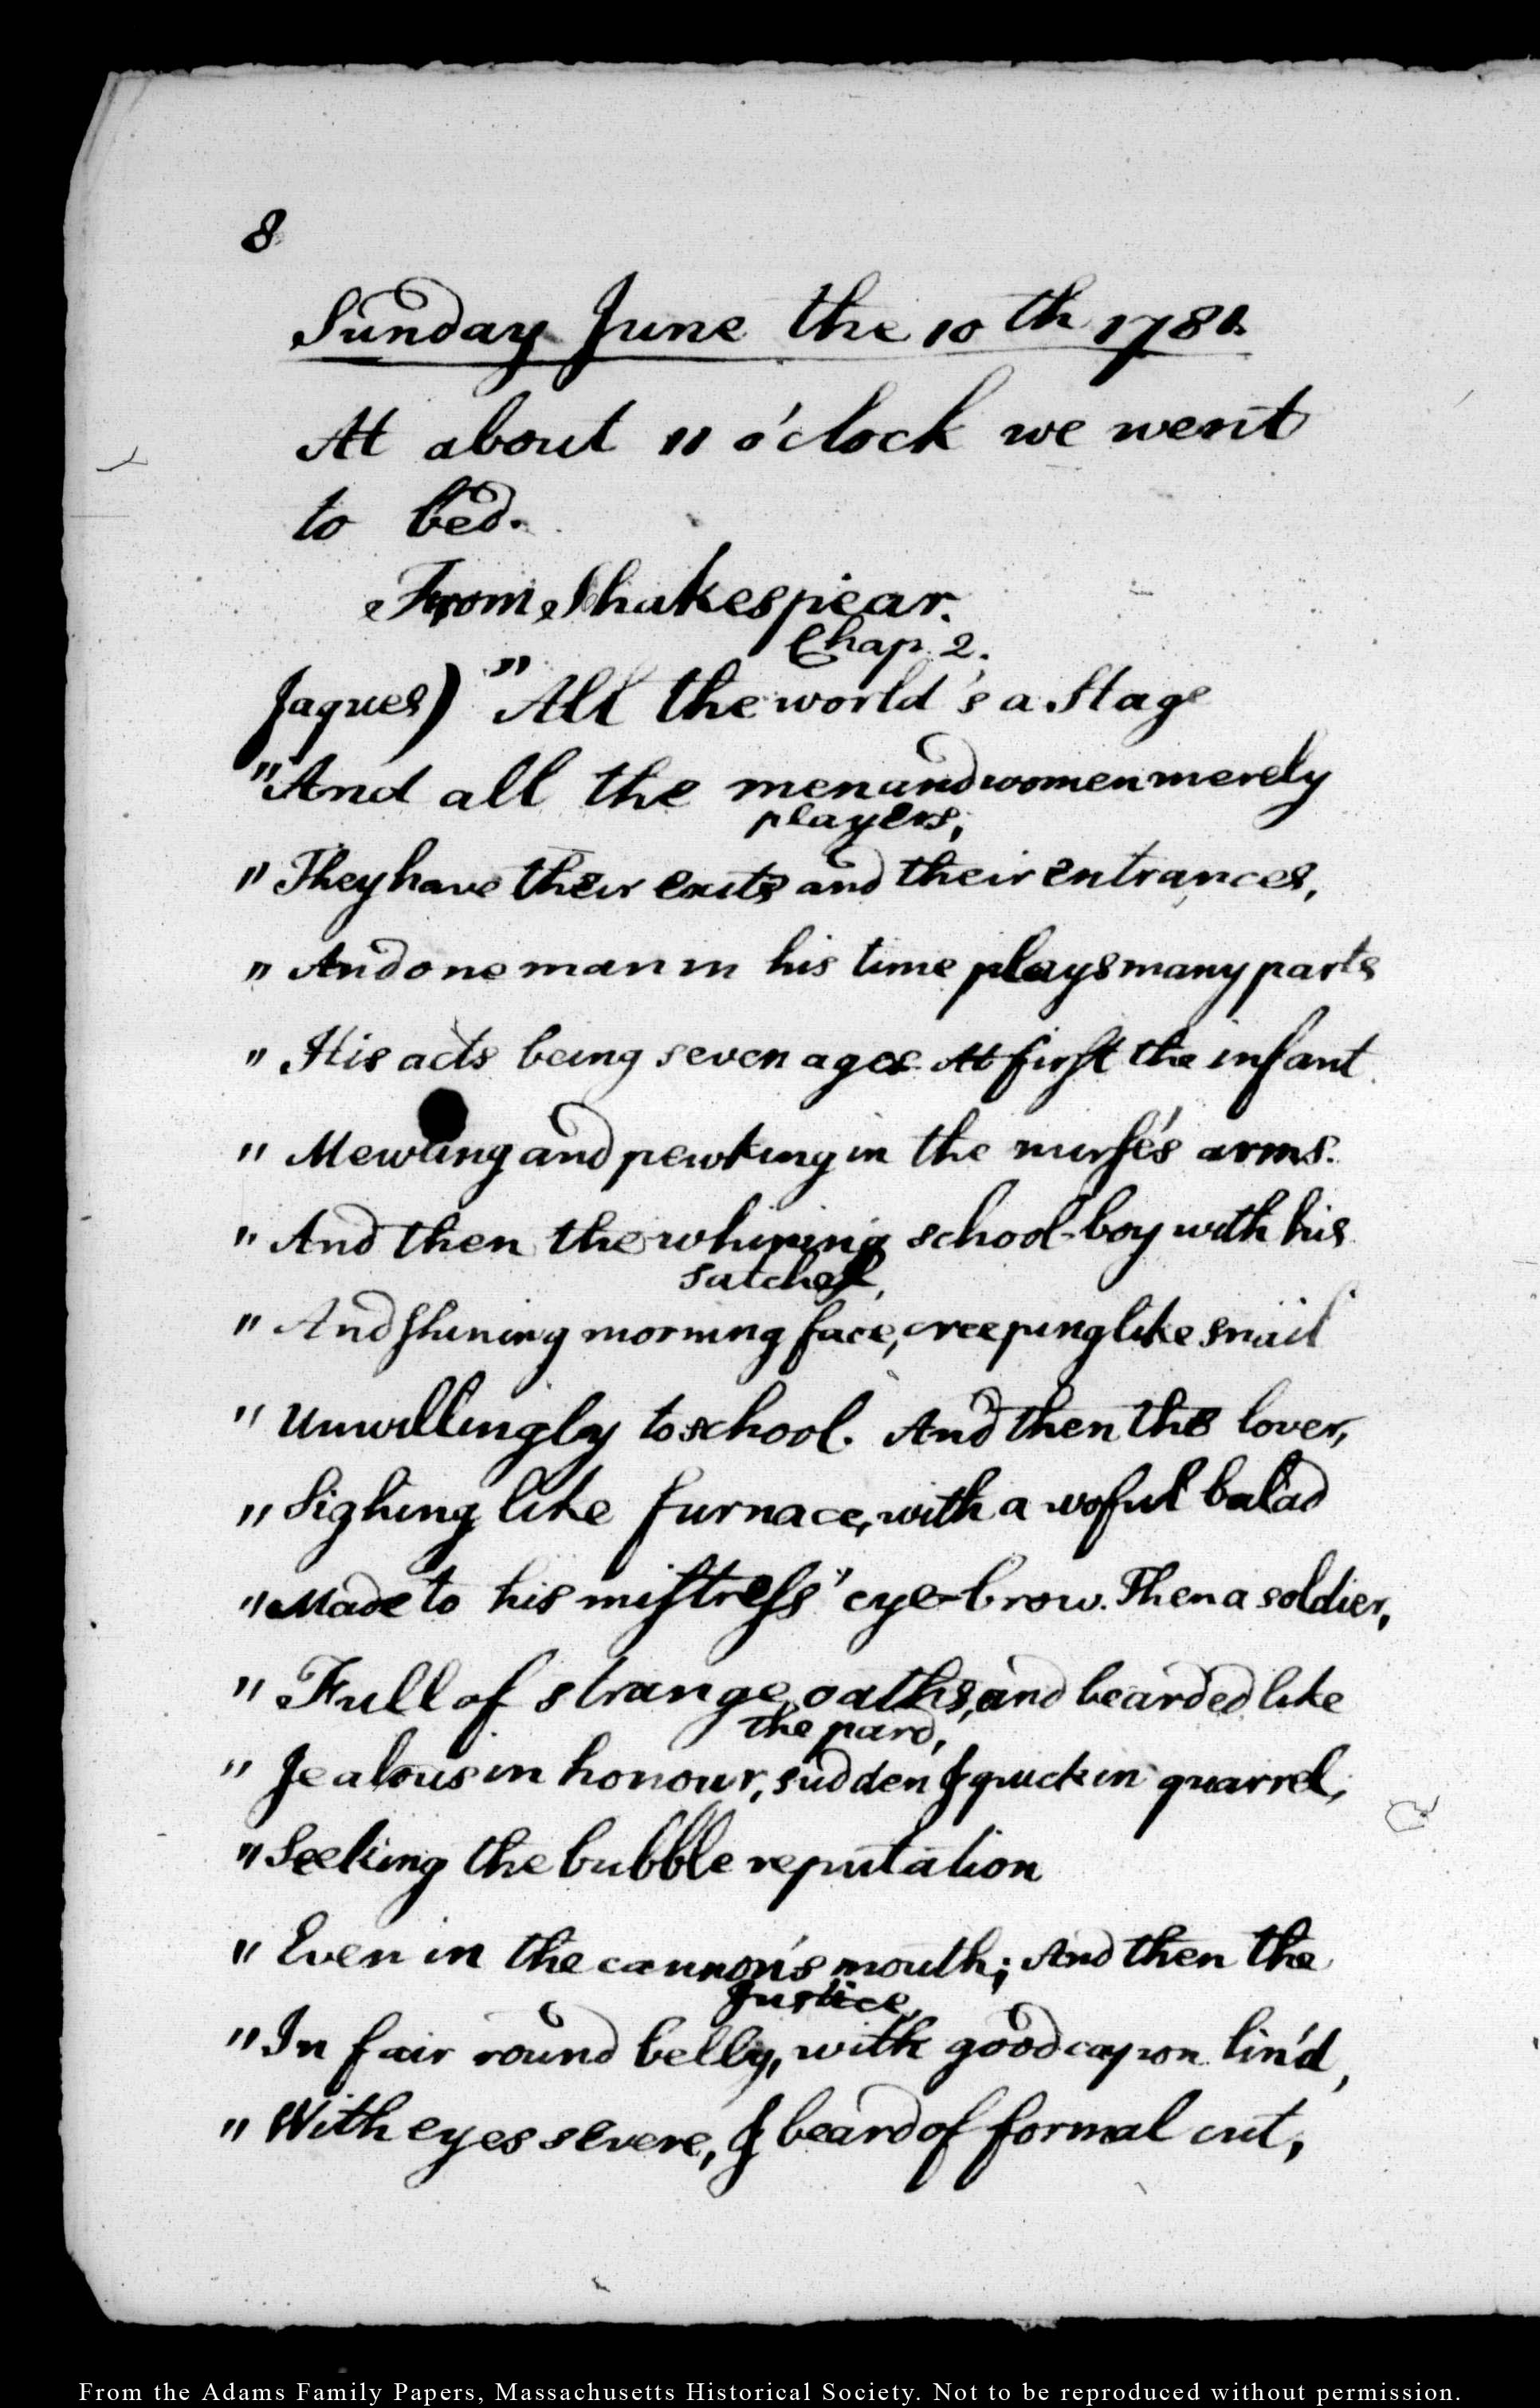 8
Sunday June the 10th 1781.
At about 11 o'clock we went
to bed.
From Shakespear.
Chap. 2.
Jaques) "All the world's a Stage
"And all the men and women merely
players;
"They have their exits and their entrances,
"And one man in his time plays many parts
"His acts being seven ages. At first the infant
"Mewling and pewking in the nurse's arms.
"And then the whining school-boy with his
satchel,
"And shining morning face, creeping like snail
"Unwillingly to school. And then the lover,
"Sighing like furnace, with a woful balad
"Made to his mistress' eye-brow. Then a soldier,
"Full of strange oaths, and bearded like
the pard,
"Jealous in honour, sudden & quick in quarrel,
"Seeking the bubble reputation
"Even in the cannon's mouth; And then the
Justice,
"In fair round belly, with good capon lin'd,
"With eyes severe, & beard of formal cut,
From the Adams Family Papers, Massachusetts Historical Society. Not to be reproduced without permission.